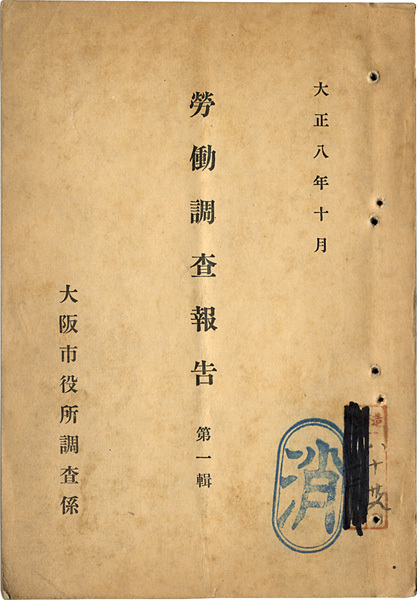 大正八年十月
勞働調査報告 第一輯
大阪市役所調査係
消